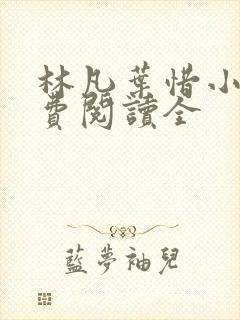 林凡葉惜小
費閱讀全
藍夢袖兒